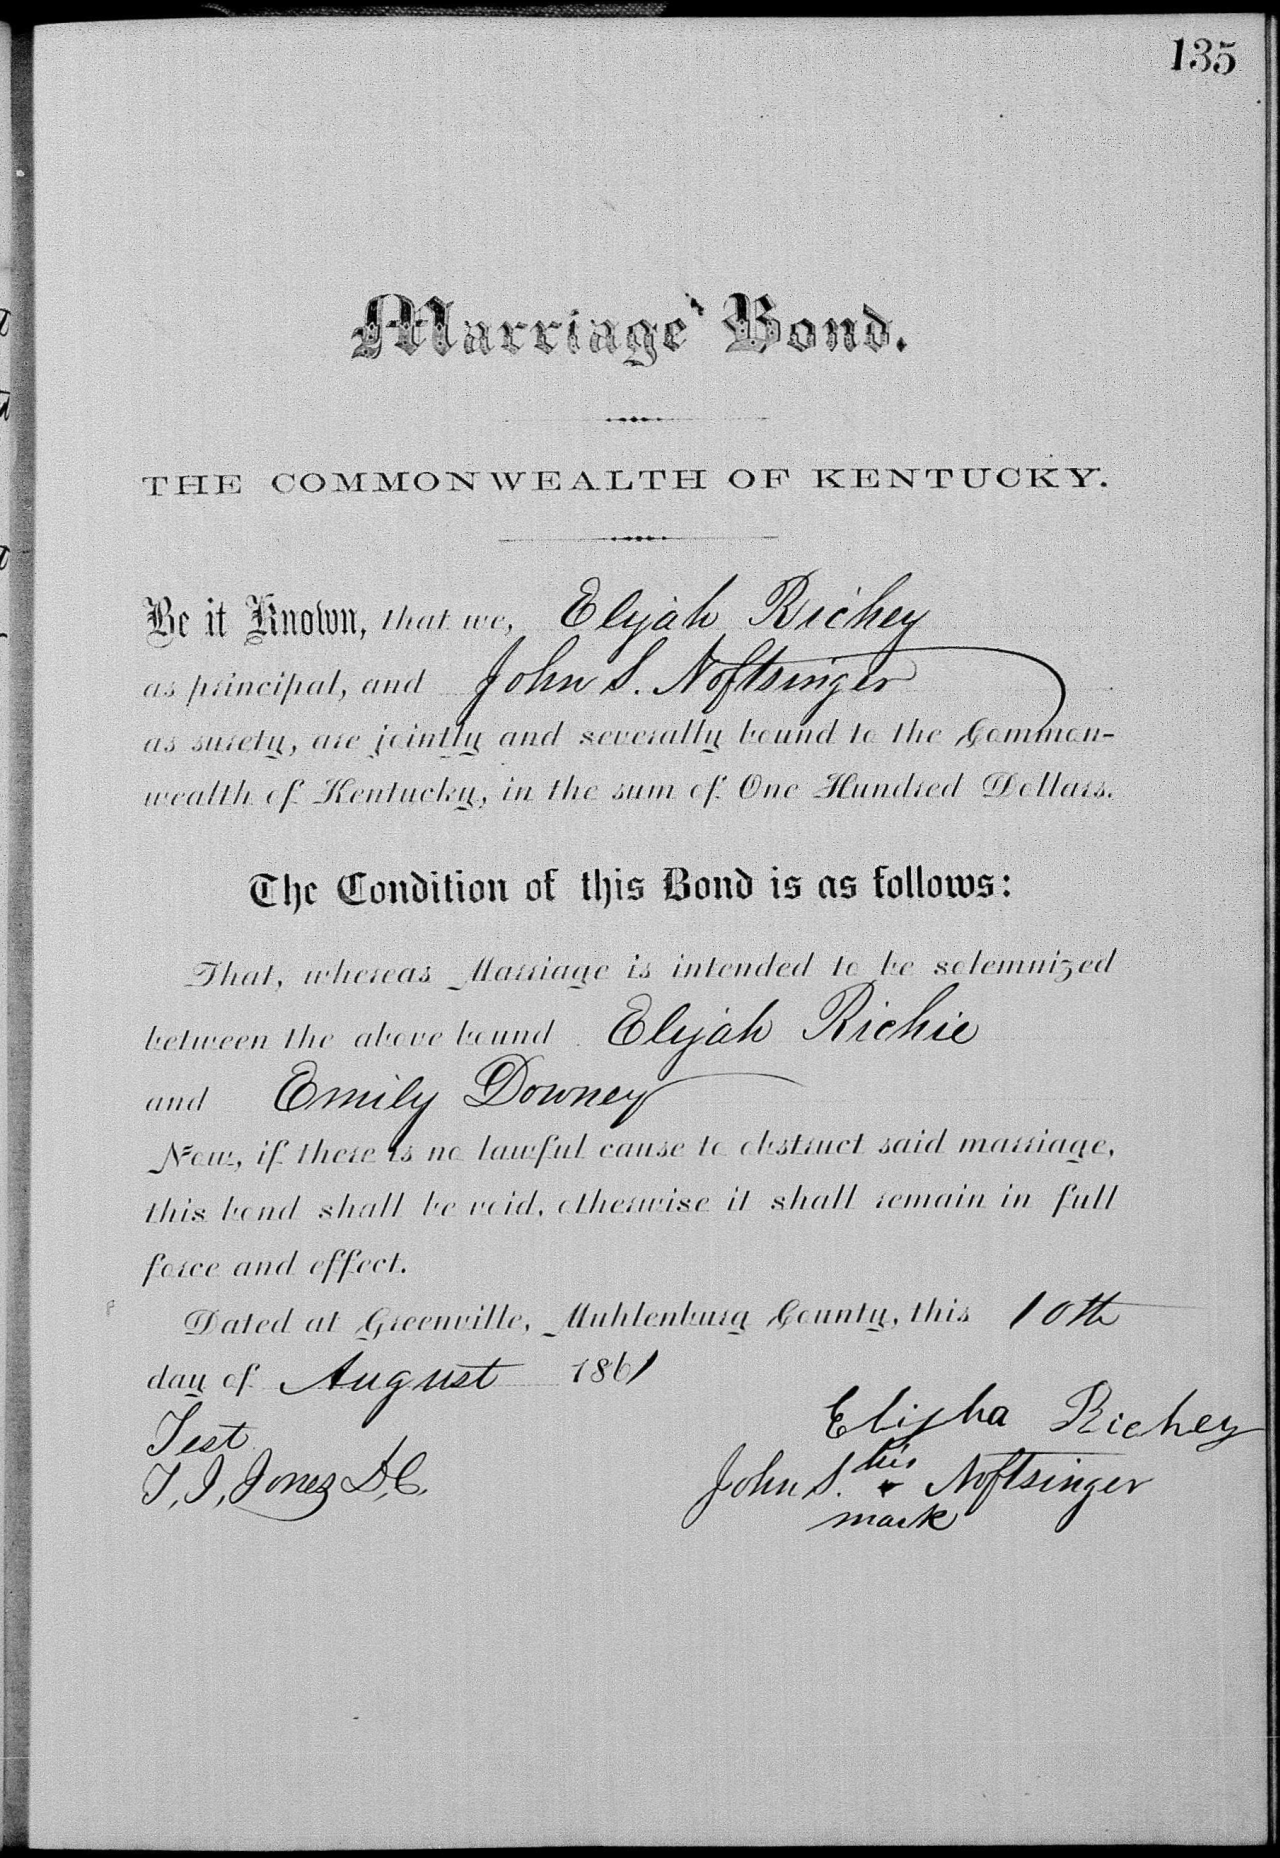 135
Marriage Bond.
THE COMMONWEALTH OF KENTUCKY.
Be it Known, that we, Elijah Richey
as principal, and John S. Noftsinger
as surety, are jointly and severally bound to the Common-
wealth of Kentucky, in the sum of One Hundred Dollars.
The Condition of this Bond is as follows:
That, whereas Marriage is intended to be solemnized
between the above bound Elijah Richie
and Emily Downey
Now, if there is no lawful cause to obstruct said marriage,
this bond shall be void, otherwise it shall remain in full
force and effect.
Dated at Greenville, Muhlenburg County, this 10th
day of August 1861
Elijha Richey
Test
his
John S. + Noftsinger
T, J, Jones D, C.
mark